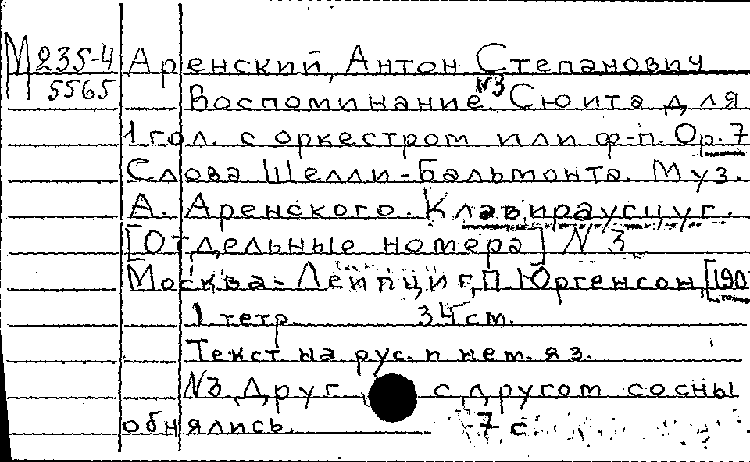 М 235-4 Аренский, Антон Степанович
5565 Воспоминание. №3 Сюита для
1 гол. с оркестром или ф-п. Ор. 7
Слова Шелли-Бальмонта. Муз.
А. Аренского. Клавираусцуг.
[Отдельные номера] N 3
Москва-Лейпциг, П. Юргенсон, [190
1 тетр. 34 см.
Текст на рус. и нем. яз.
N3. Друг с другом сосны
обнялись. 7 с.